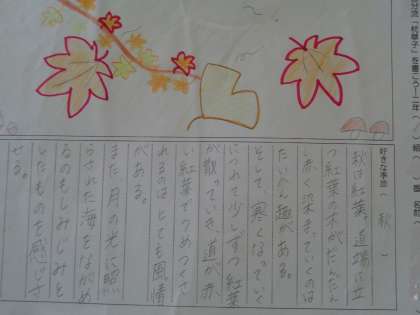 分流「枕草子」を書こう 二年( ノ 組 ) 番 名前(
好きな季節( 秋 )
秋は紅葉。道場に立
つ紅葉の木がだんだん
い赤く染まっていくのは
たいへん趣がある。
そして、寒くなっていく
につれて少しずつ紅葉
が散っていき、道が赤
い紅葉でうめつくさ
れるのはとても風情
がある。
また月の光に照
らされた海をながめ
るのもしみじみと
したものを感じさ
せる。